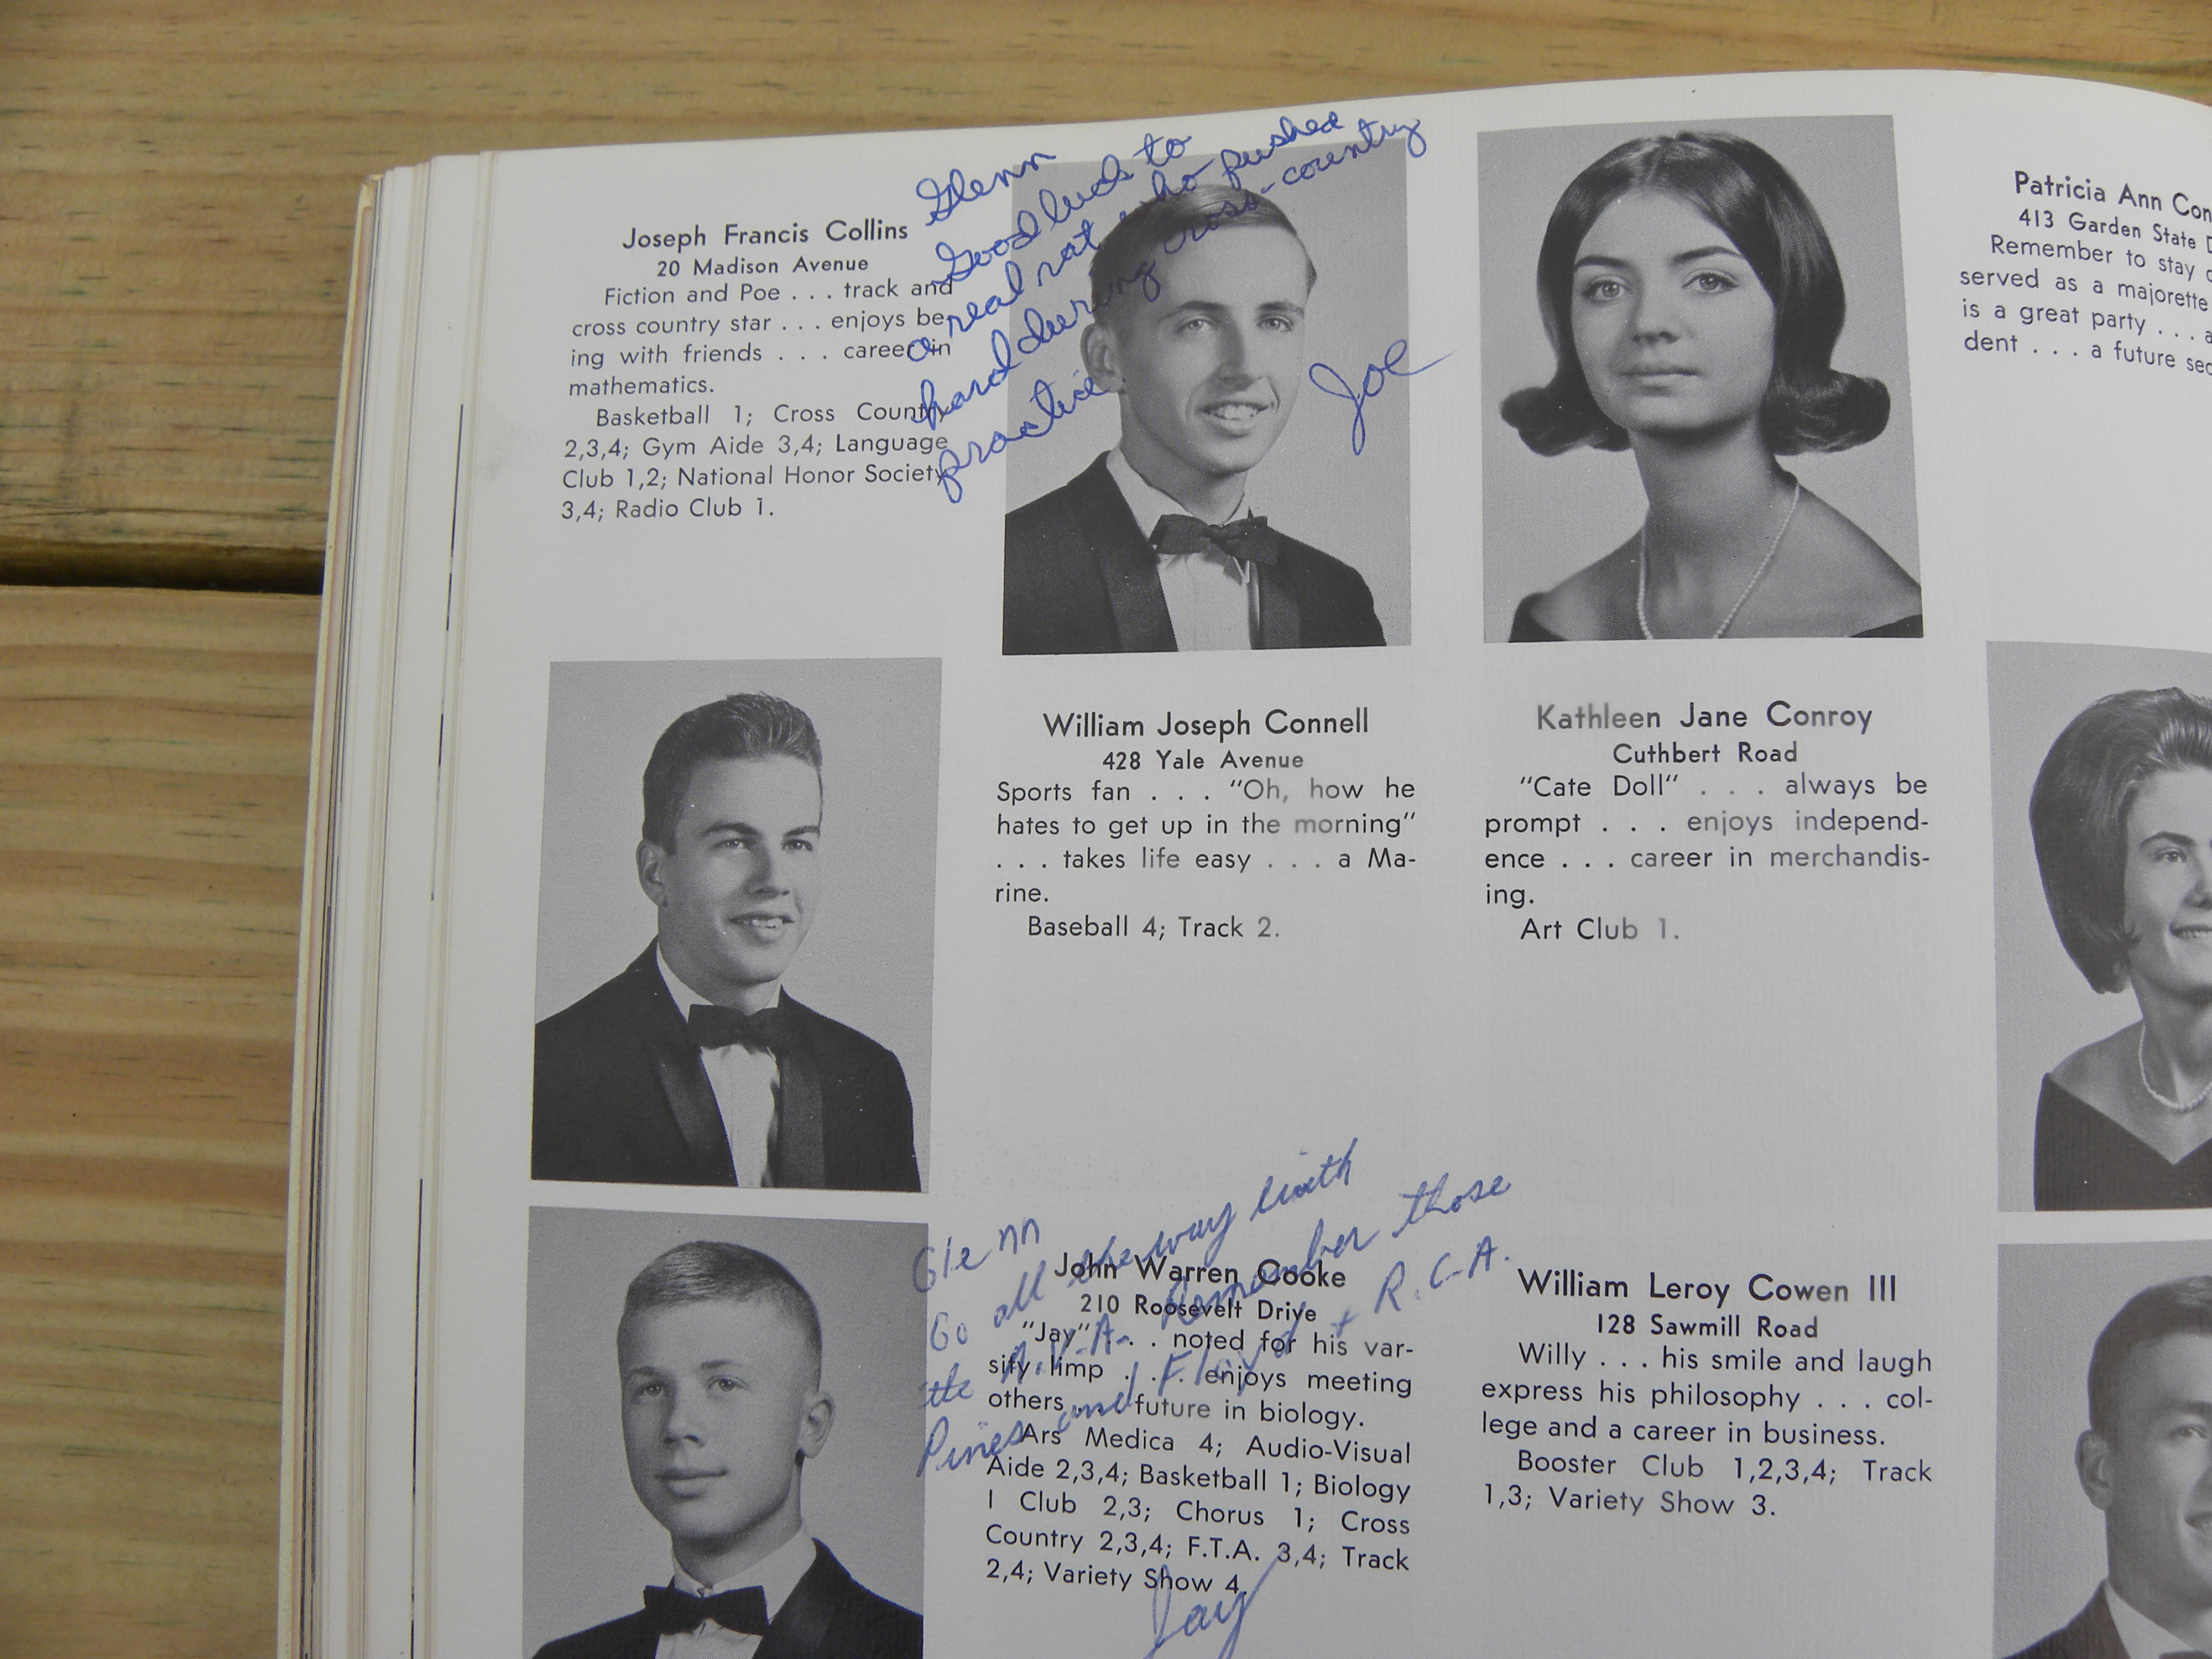 Joseph Francis Collins
20 Madison Avenue
Fiction and Poe . . . track and
cross country star . . . enjoys be-
ing with friends . . . career in
mathematics.
Basketball 1; Cross Country
2,3,4; Gym Aide 3,4; Language
Club 1,2; National Honor Society
3,4; Radio Club 1.
Glenn
Good luck to
a real rat who pushed
hard during cross-country
practice.
Joe
Patricia Ann Con
413 Garden State D
Remember to stay
served as a majorette
is a great party . . . a
dent . . . a future sec
William Joseph Connell
428 Yale Avenue
Sports fan . . . "Oh, how he
hates to get up in the morning"
. . . takes life easy . . . a Ma-
rine.
Baseball 4; Track 2.
Kathleen Jane Conroy
Cuthbert Road
"Cate Doll" . . . always be
prompt . . . enjoys independ-
ence . . . career in merchandis-
ing.
Art Club 1.
Glenn
Go all the way with
the Remember those
Pines and Floyd + R.C.A.
Jay
John Warren Cooke
210 Roosevelt Drive
"Jay" . . . noted for his var-
sity limp . . . enjoys meeting
others . . . future in biology.
Ars Medica 4; Audio-Visual
Aide 2,3,4; Basketball 1; Biology
I Club 2,3; Chorus 1; Cross
Country 2,3,4; F.T.A. 3,4; Track
2,4; Variety Show 4.
William Leroy Cowen III
128 Sawmill Road
Willy . . . his smile and laugh
express his philosophy . . . col-
lege and a career in business.
Booster Club 1,2,3,4; Track
1,3; Variety Show 3.